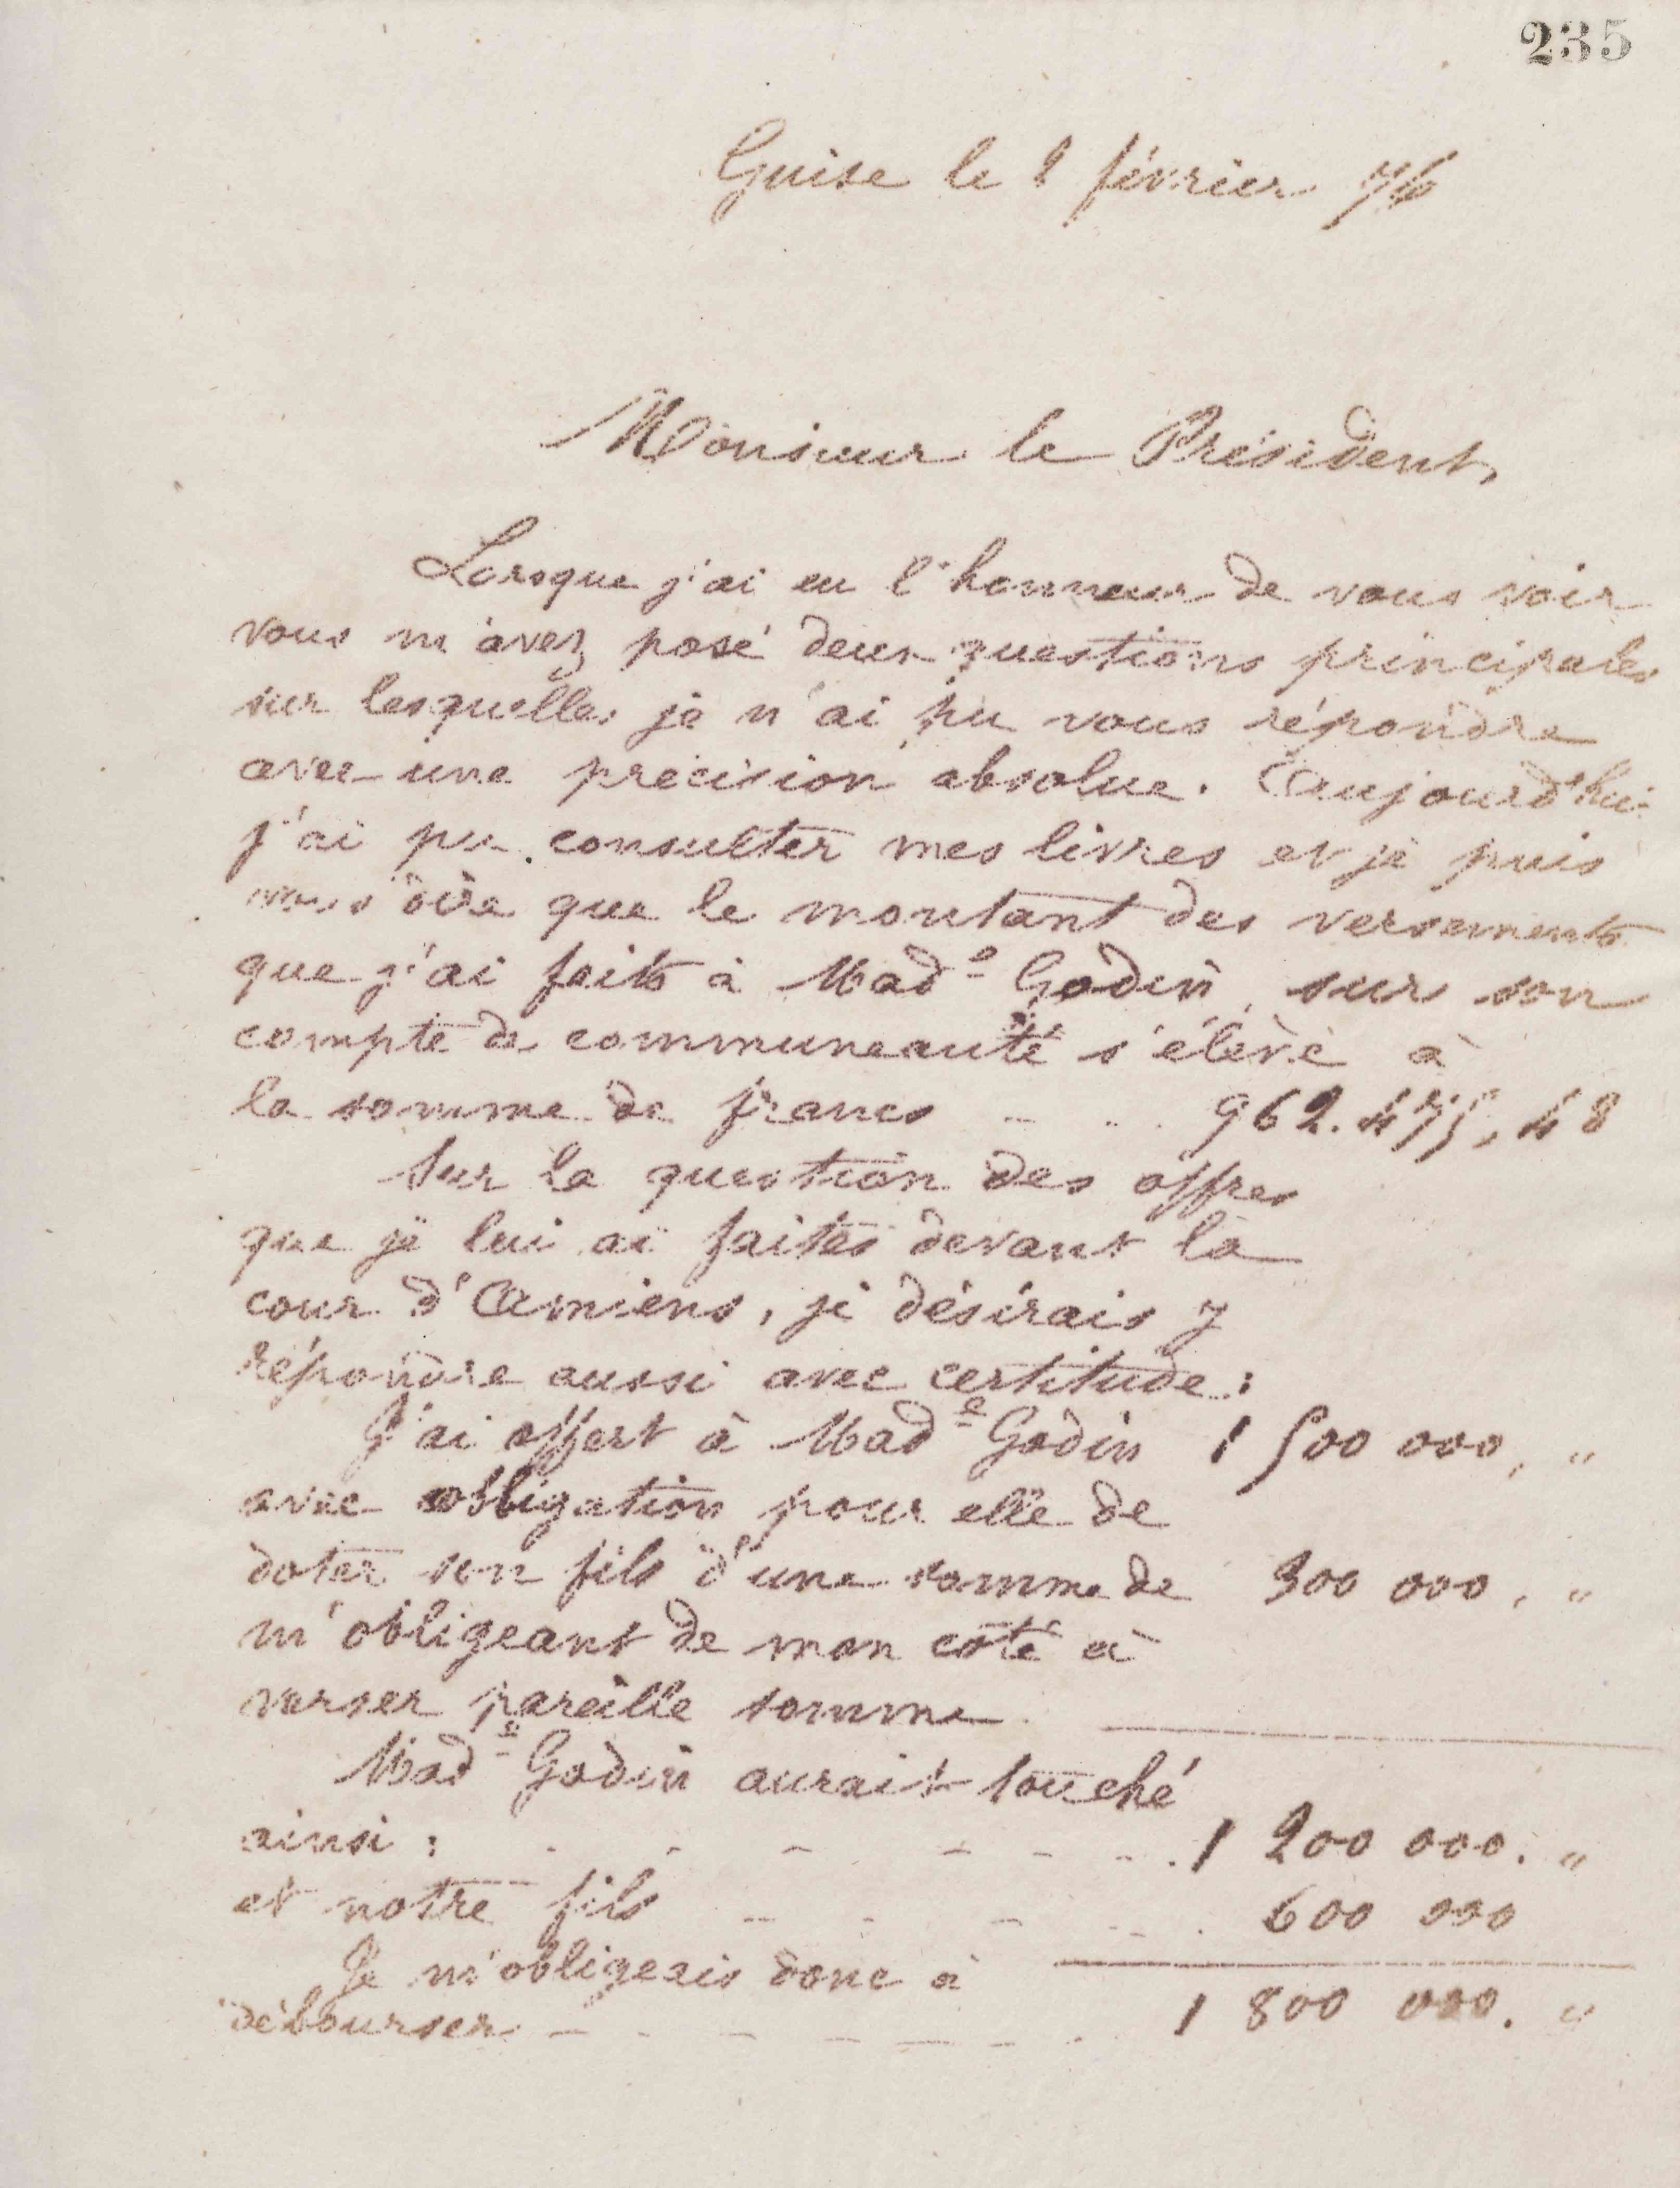 235
Guise le 8 février 76
Monsieur le Président,
Lorsque j'ai eu l'honneur de vous voir
vous m'avez posé deux questions principales
sur lesquelles je n'ai pu vous répondre
avec une précision absolue. Aujourd'hui
j'ai pu consulter mes livres et je puis
vous dire que le montant des versements
que j'ai faits à Made Godin, sur son
compte de communeauté s'élève à
la somme de francs - .. . 962.475,48
Sur la question des offres
que je lui ai faites devant la
cour d'Amiens, je désirais y
répondre aussi avec certitude :
J'ai offert à Made Godin 1 500 000, "
avec obligation pour elle de
doter son fils d'une somme de 300 000, "
m'obligeant de mon côté à
verser pareille somme.
Made Godin aurait touché
ainsi : . - - - - - . 1 200 000. "
et notre fils - - - - . 600 000
Je m'obligeais donc à
débourser - - - - - . 1 800 000. "